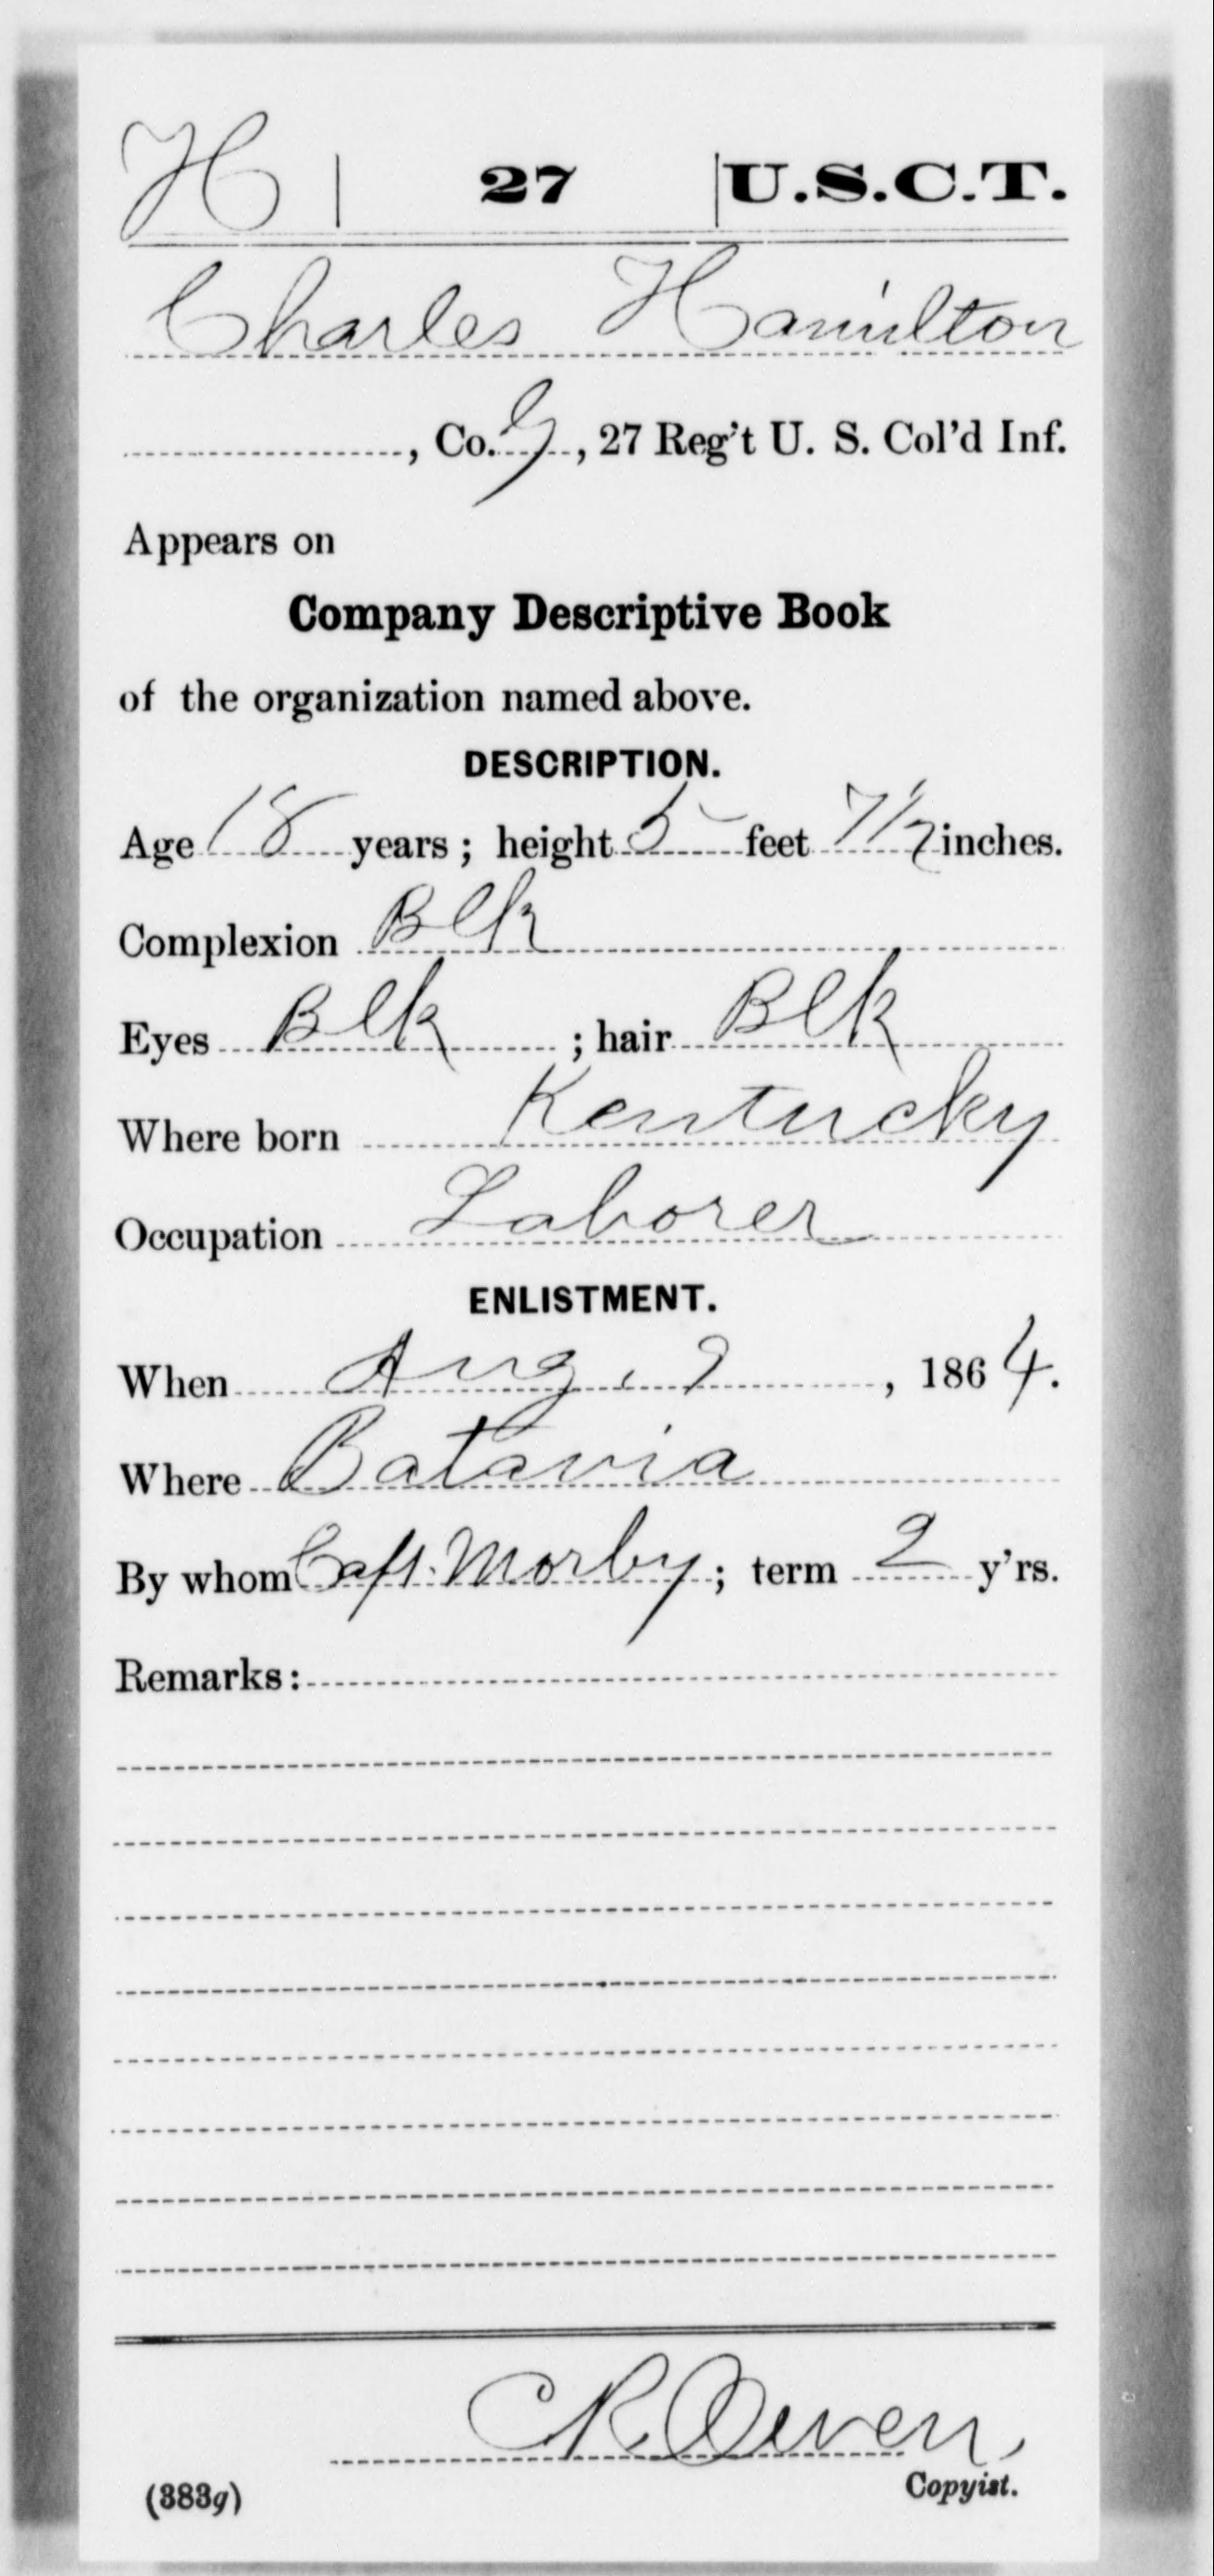 H | 27 | U.S.C.T.
Charles Hamilton
, Co. G, 27 Reg't U. S. Col'd Inf.
Appears on
Company Descriptive Book
of the organization named above.
DESCRIPTION.
Age 18 years; height 5 feet 7 1/2 inches.
Complexion Blk
Eyes Blk; hair Blk
Where born Kentucky
Occupation Laborer
ENLISTMENT.
When Aug. 9, 1864.
Where Batavia
By whom Capt. Morby; term 2 y'rs.
Remarks:
C R Owen,
Copyist.
(383g)